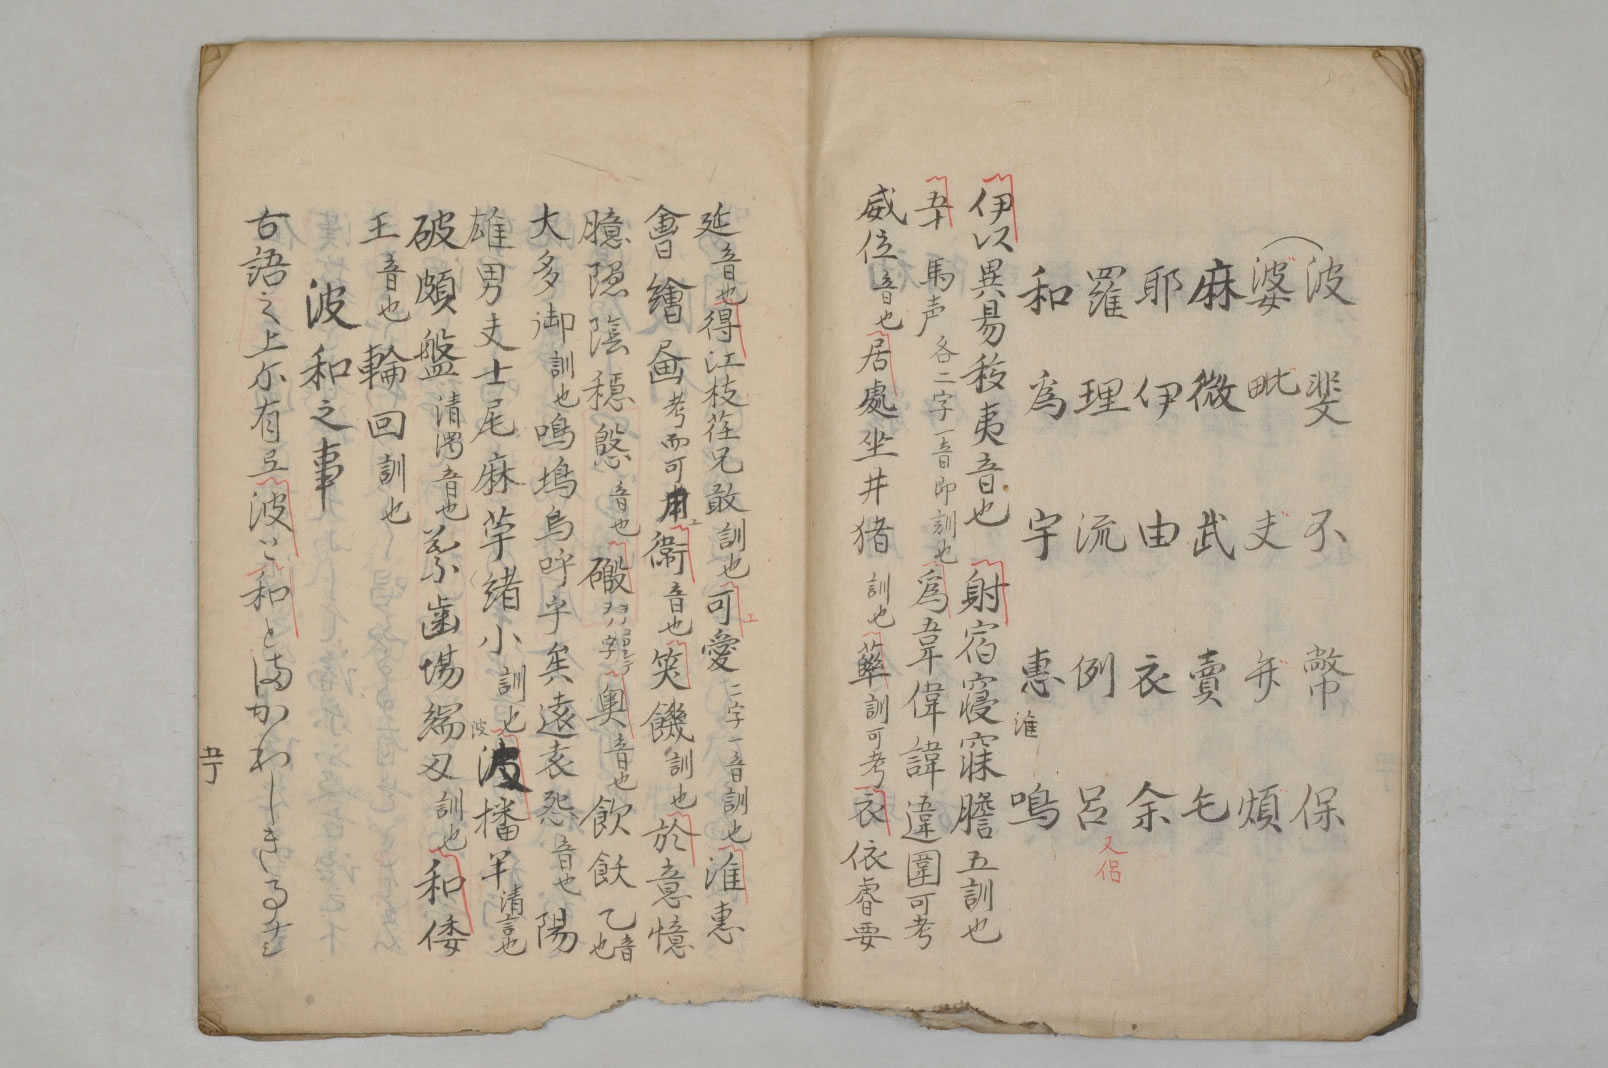 波 斐 不 幣 保
婆 毗 夫 弁 煩
麻 微 武 賣 毛
耶 伊 由 衣 余
羅 理 流 例 呂 又侶
和 為 宇 惠 淮 鳴
伊以異易移夷音也 射宿寝寐膽五訓也
五十 馬声 各二字一音即訓也 為韋偉諱違圍可考
威位音也居處坐井猪 訓也 藥訓可考衣依睿要
延音也得江枝荏兄敢訓也可愛二字一音訓也淮惠
會繪画考而可用衞音也笑饑訓也於意憶
臆隠陰穏慇音也磤字奥音也飲飫乙音也
大多御訓也鳴塢烏呼乎矣遠袁怨音也陽
雄男夫士尾麻苧緒小訓也波播羊清言也
破頗盤清濁音也歯場端刄訓也和倭
王音也輪回訓也
波和之事
古語之上尓有云波と和とまかわしき
五丁